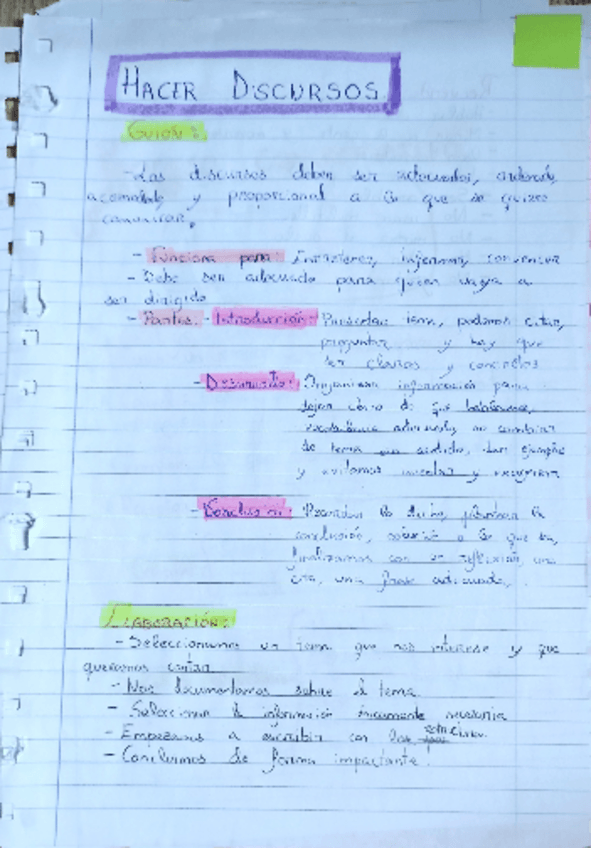 HACER DISCURSOS
GUIÓN:
-Los discursos deben ser adecuados, ordenado,
acomodado y proporcional a lo que se quiere
comunicar.
- Funciona para: Entretener, informar, convencer
- Debe ser adecuado para quien vaya a
ser dirigido
- Partes: - Introducción: Presentar tema, podemos citar,
preguntar y hay que
ser claros y concretos
- Desarrollo: Organizar información para
dejar claro de que hablamos,
vocabulario adecuado, no cambiar
de tema sin sentido, dar ejemplos
y evitamos mezclar y
- Conclusión: Recordar lo dicho, plantear la
conclusión, a lo que
finalizamos con una reflexión, una
cita, una frase adecuada,
ELABORACIÓN:
- Seleccionamos un tema que nos interese y que
queramos contar
- Nos documentamos sobre el tema
- Seleccionar la información únicamente necesaria
- Empezamos a escribir con las
- Concluimos de forma impactante!